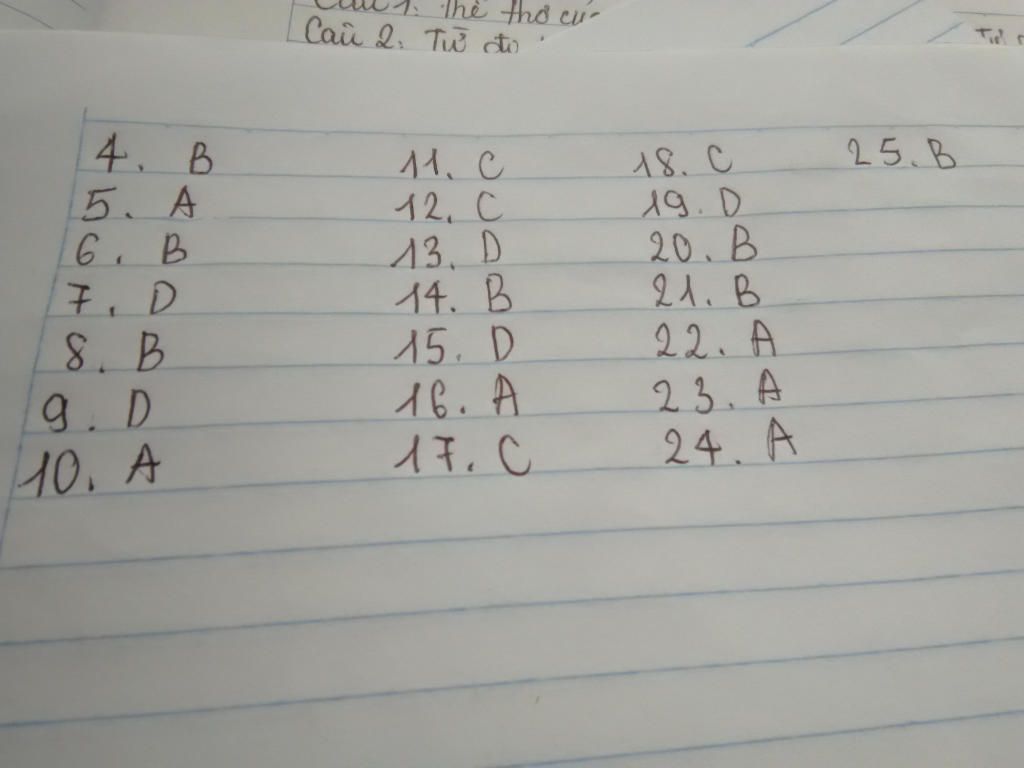 Câu 1: Thể thơ
Câu 2: Từ
4. B
5. A
6. B
7. D
8. B
9. D
10. A
11. C
12. C
13. D
14. B
15. D
16. A
17. C
18. C
19. D
20. B
21. B
22. A
23. A
24. A
25. B